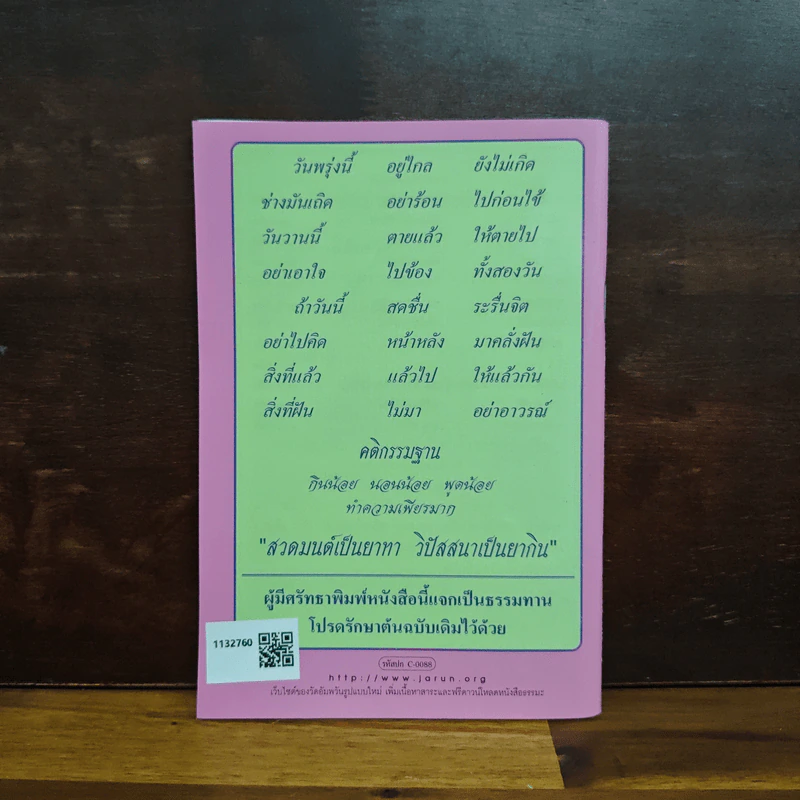 วันพรุ่งนี้ อยู่ไกล ยังไม่เกิด
ช่างมันเถิด อย่าร้อน ไปก่อนไข้
วันวานนี้ ตายแล้ว ให้ตายไป
อย่าเอาใจ ไปข้อง ทั้งสองวัน
ถ้าวันนี้ สดชื่น ระรื่นจิต
อย่าไปคิด หน้าหลัง มาคลั่งฝัน
สิ่งที่แล้ว แล้วไป ให้แล้วกัน
สิ่งที่ฝัน ไม่มา อย่าอาวรณ์
คติกรรมฐาน
กินน้อย นอนน้อย พูดน้อย
ทำความเพียรมาก
"สวดมนต์เป็นยาทา วิปัสสนาเป็นยากิน"
ผู้มีศรัทธาพิมพ์หนังสือนี้แจกเป็นธรรมทาน
โปรดรักษาต้นฉบับเดิมไว้ด้วย
1132760
รหัสปก C-0088
http://www.jarun.org
เว็บไซต์ของวัดอัมพวันรูปแบบใหม่ เพิ่มเนื้อหาสาระและฟรีดาวน์โหลดหนังสือธรรมะ